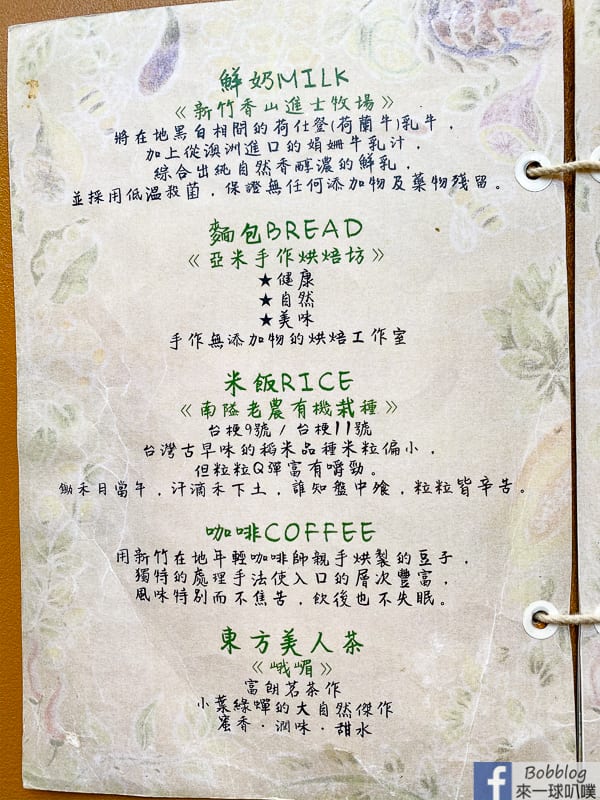 鮮奶MILK
《新竹香山進士牧場》
將在地黑白相間的荷仕登(荷蘭牛)乳牛，
加上從澳洲進口的娟姍牛乳汁，
綜合出純自然香醇濃的鮮乳，
並採用低溫殺菌，保證無任何添加物及藥物殘留。
麵包BREAD
《亞米手作烘焙坊》
★健康
★自然
★美味
手作無添加物的烘焙工作室
米飯RICE
《南隘老農有機栽種》
台梗9號 / 台梗11號
台灣古早味的稻米品種米粒偏小，
但粒粒Q彈富有嚼勁。
鋤禾日當午，汗滴禾下土，誰知盤中飧，粒粒皆辛苦。
咖啡COFFEE
用新竹在地年輕咖啡師親手烘製的豆子，
獨特的處理手法使入口的層次豐富，
風味特別而不焦苦，飲後也不失眠。
東方美人茶
《峨嵋》
富朗茗茶作
小葉綠蟬的大自然傑作
蜜香·潤味·甜水
Bobblog
來一球叭噗